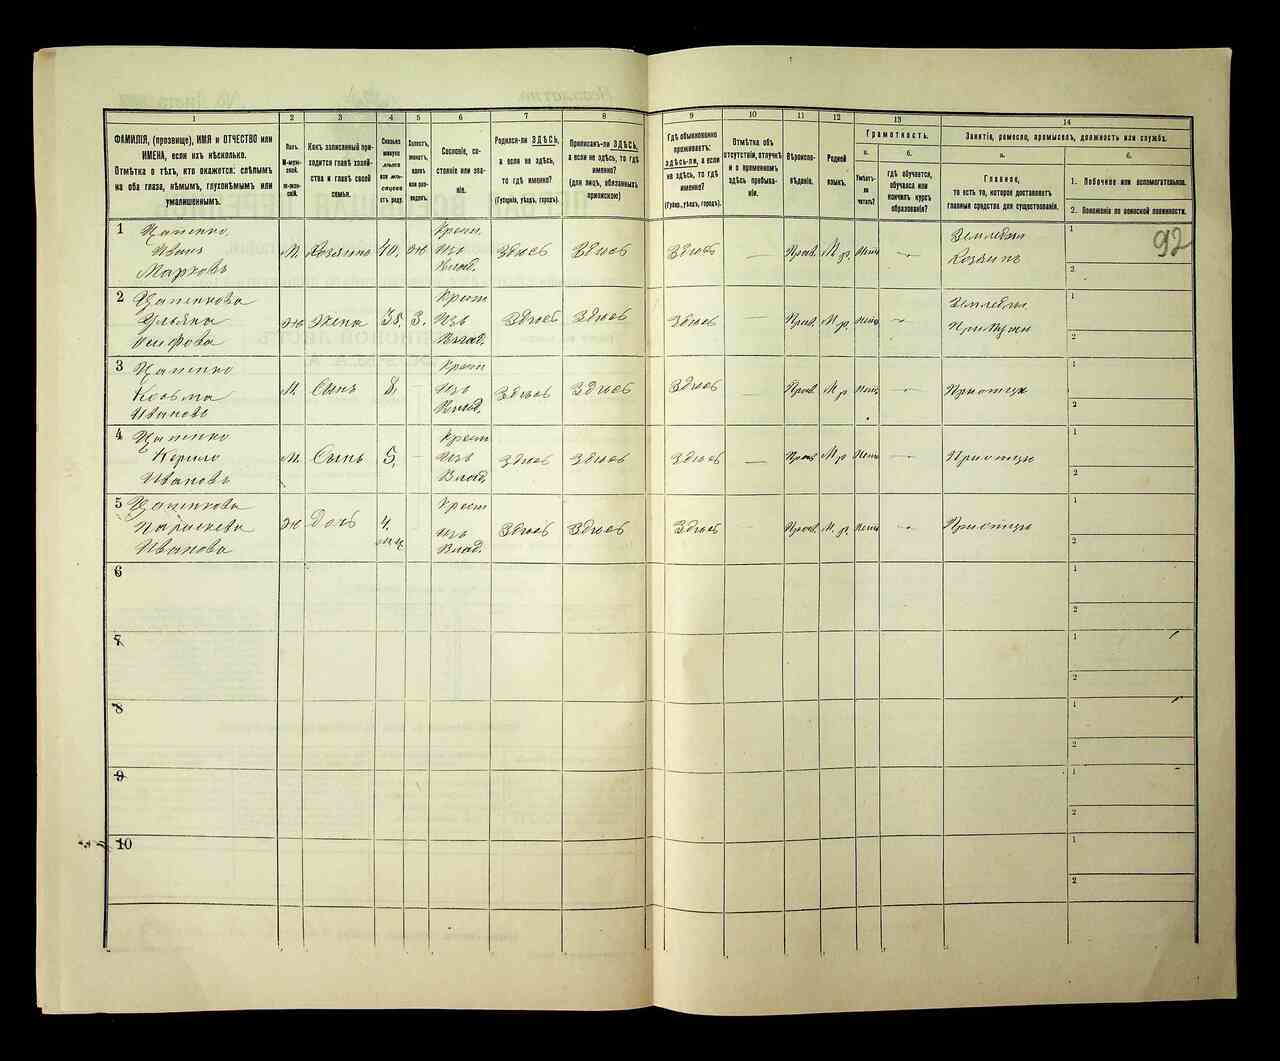 1 2 3 4 5 6 7 8 9 10 11 12 13 14
ФАМИЛІЯ, (прозвище), ИМЯ и ОТЧЕСТВО или
ИМЕНА, если ихъ нѣсколько.
Отмѣтка о тѣхъ, кто окажется: слѣпымъ
на оба глаза, нѣмымъ, глухонѣмымъ или
умалишеннымъ.
Полъ.
М-муж-
ской.
Ж-жен-
скій.
Какъ записанный при-
ходится главѣ хозяй-
ства и главѣ своей
семьи.
Сколько
минуло
лѣтъ
или мѣ-
сяцевъ
отъ роду.
Холостъ,
женатъ,
вдовъ
или раз-
веденъ.
Сословіе, со-
стояніе или зва-
ніе.
Родился-ли ЗДѢСЬ,
а если не здѣсь,
то гдѣ именно?
(Губернія, уѣздъ, городъ).
Приписанъ-ли ЗДѢСЬ,
а если не здѣсь, то гдѣ
именно?
(для лицъ, обязанныхъ
припискою)
Гдѣ обыкновенно
проживаетъ:
здѣсь-ли, а если
не здѣсь, то гдѣ
именно?
(Губерн., уѣздъ, городъ).
Отмѣтка объ
отсутствіи, отлучкѣ
и о временномъ
здѣсь пребыва-
ніи.
Вѣроиспо-
вѣданіе.
Родной
языкъ.
Грамотность.
а.
Умѣетъ-
ли
читать?
б.
Гдѣ обучается,
обучался или
кончилъ курсъ
образованія?
Занятіе, ремесло, промыселъ, должность или служба.
а.
Главное,
то есть то, которое доставляетъ
главныя средства для существованія.
б.
1. Побочное или вспомогательное.
2. Положеніе по воинской повинности.
92
1 Цапенко
Иванъ
Марковъ
М. Хозяинъ 40. ж
Крест.
Изъ
Влад.
Здѣсь Здѣсь Здѣсь — Прав. М.р. Нетъ —
Землед
Хозяинъ
1
2
2 Цапенкова
Ульяна
ж Жена 35. З.
Крест
Изъ
Влад.
Здѣсь Здѣсь Здѣсь — Прав. М.р. Нетъ —
Землед
При мужи
1
2
3 Цапенко
Козьма
Ивановъ
М. Сынъ 8. -
Крест
Изъ
Влад.
Здѣсь Здѣсь Здѣсь — Прав. М.р. Нетъ —
При отцѣ
1
2
4 Цапенко
Кирило
Ивановъ
М. Сынъ 5. -
Крест
Изъ
Влад.
Здѣсь Здѣсь Здѣсь — Прав. М.р. Нетъ —
При отцѣ
1
2
5 Цапенкова
Параскева
Иванова
ж Дочь 4. -
Крест
Изъ
Влад.
Здѣсь Здѣсь Здѣсь — Прав. М.р. Нетъ —
При отцѣ
1
2
6
1
2
7
1
2
8
1
2
9
1
2
10
1
2